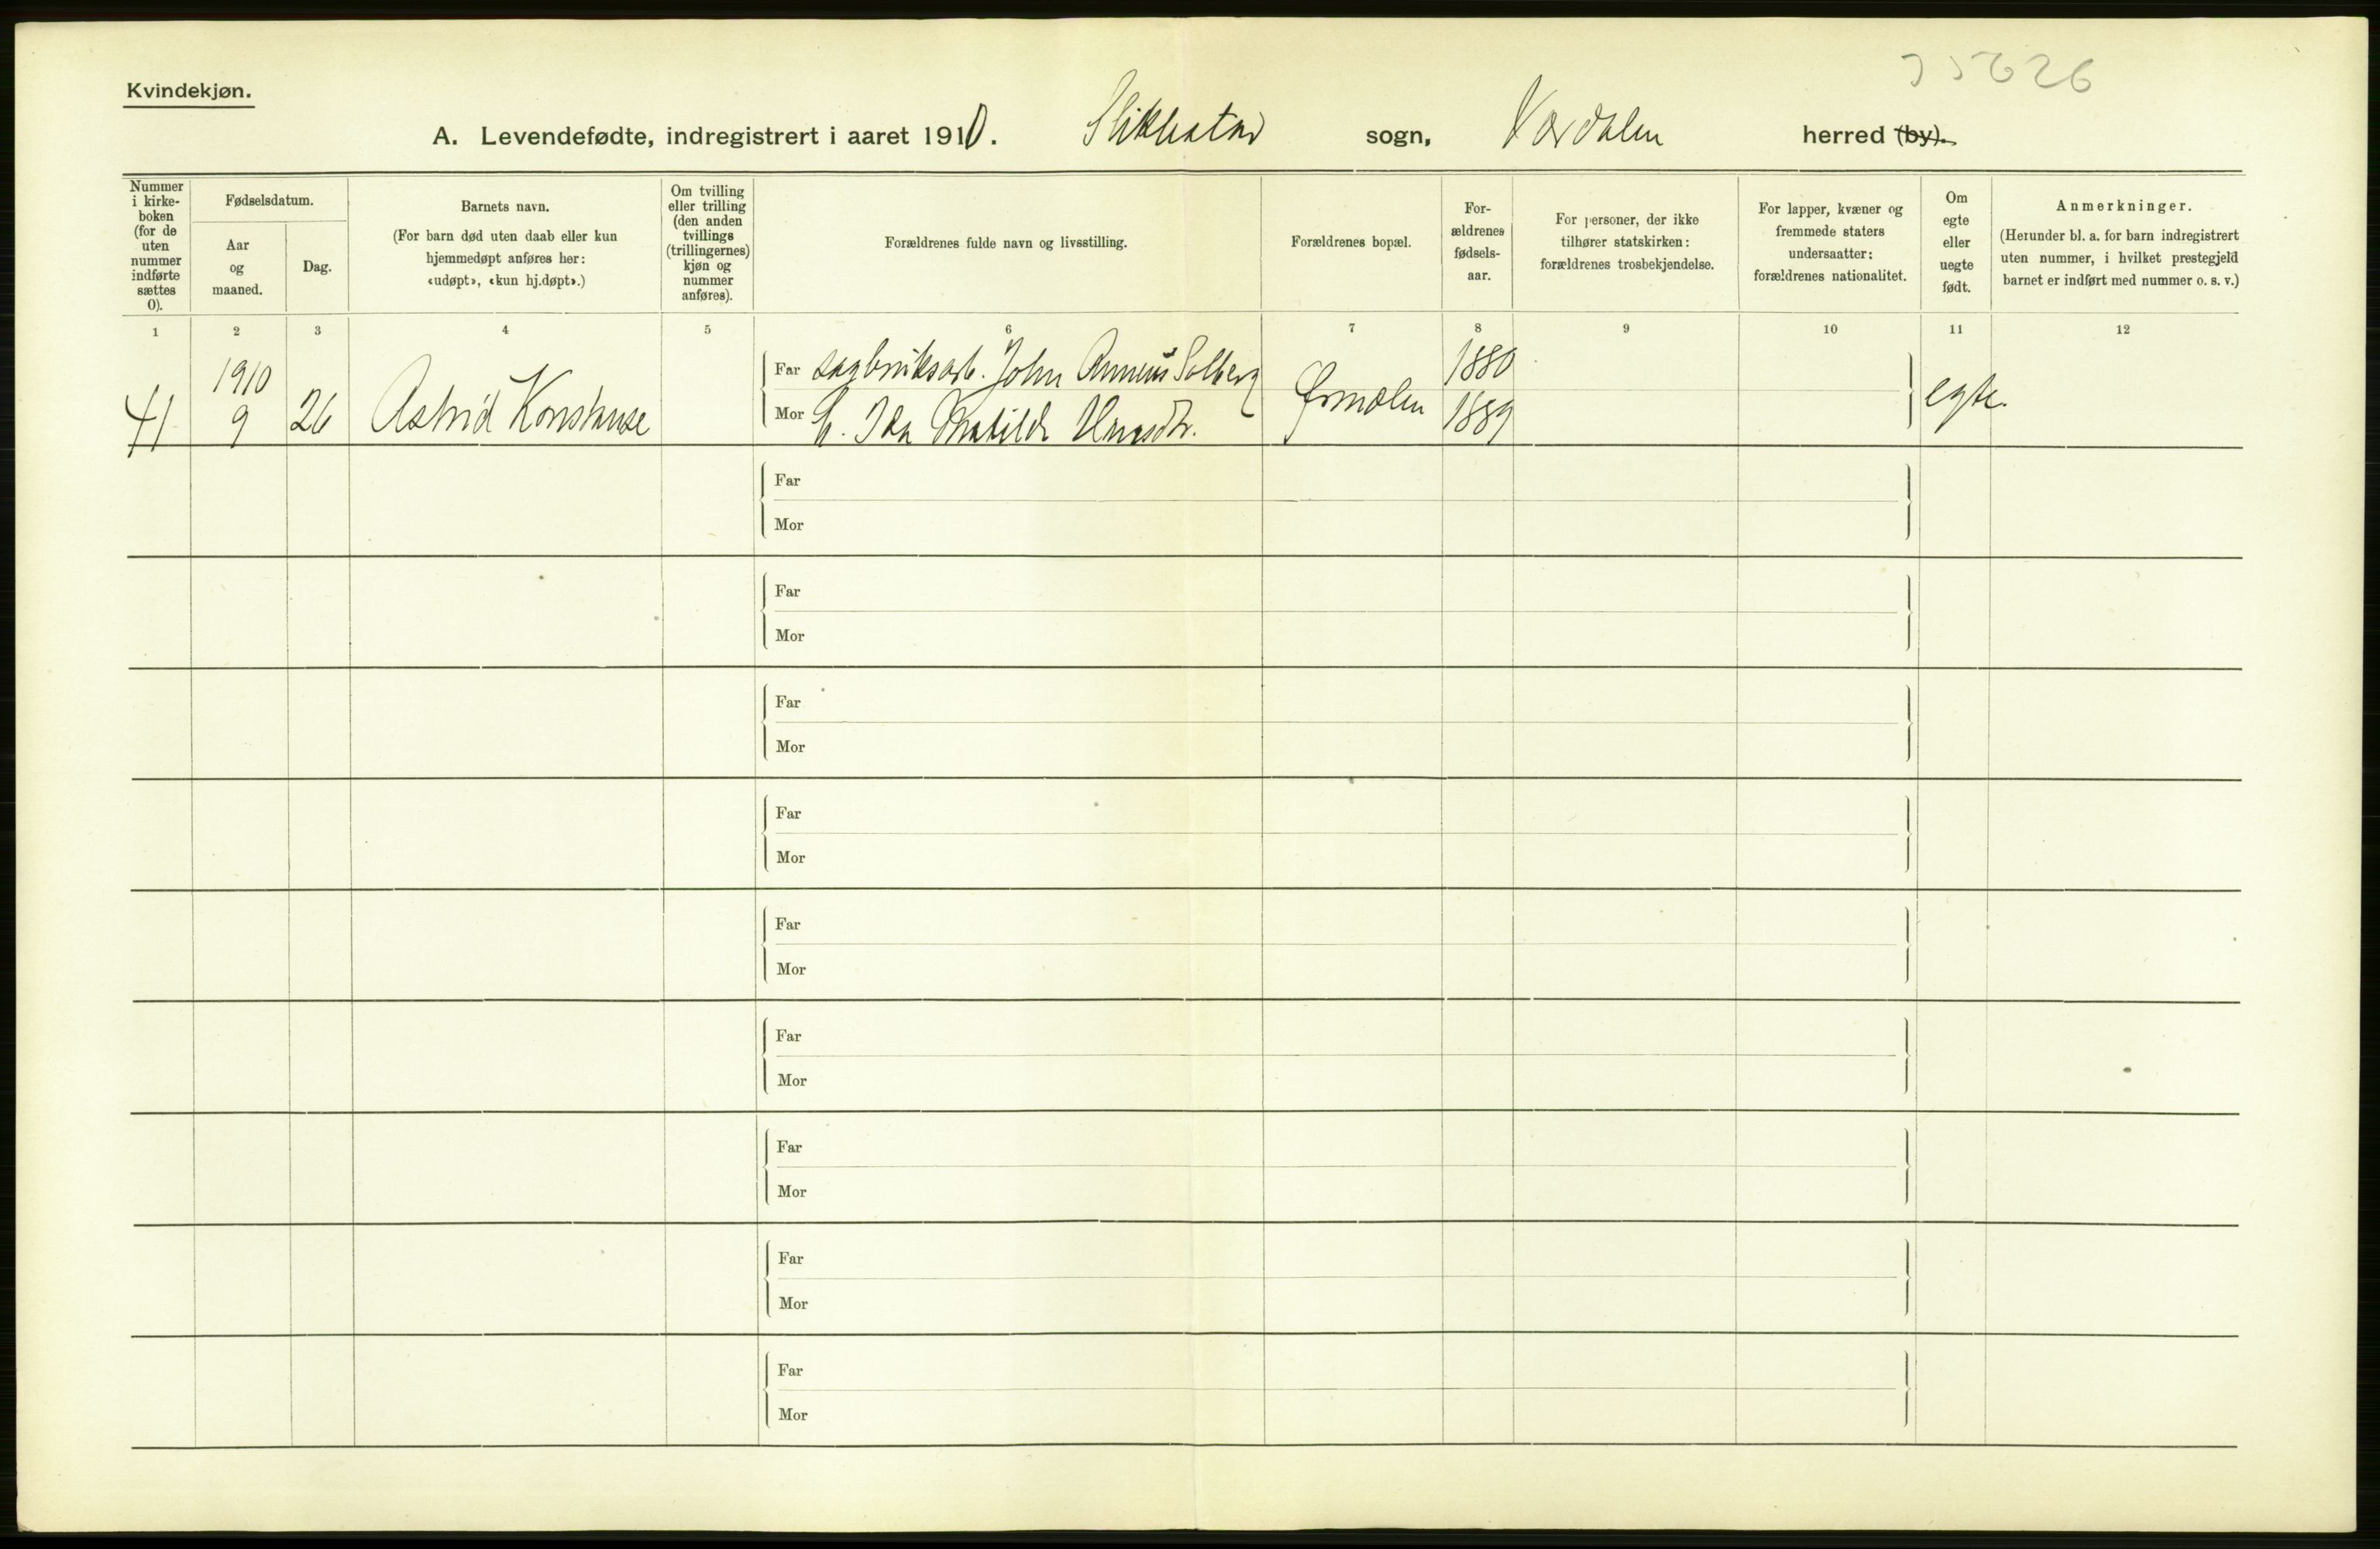 Kvindekjøn.
A. Levendefødte, indregistrert i aaret 1910. Stiklestad sogn, Værdalen herred (by).
Nummer i kirke-
boken
(for de
uten
nummer
indførte
sættes
0).
Fødselsdatum.
Aar
og
maaned.
Dag.
Barnets navn.
(For barn død uten daab eller kun
hjemmedøpt anføres her:
«udøpt», «kun hj.døpt».)
Om tvilling
eller trilling
(den anden
tvillings
(trillingernes)
kjøn og
nummer
anføres).
Forældrenes fulde navn og livsstilling.
Forældrenes bopæl.
For-
ældrenes
fødsels-
aar.
For personer, der ikke
tilhører statskirken:
forældrenes trosbekjendelse.
For lapper, kvæner og
fremmede staters
undersaatter:
forældrenes nationalitet.
Om
egte
eller
uegte
født.
Anmerkninger.
(Herunder bl. a. for barn indregistrert
uten nummer, i hvilket prestegjeld
barnet er indført med nummer o. s. v.)
1 2 3 4 5 6 7 8 9 10 11 12
1910 Far sagbruksarb. John Solberg 1880
41 9 26 Astrid Mor Ida Matilde Ørmelen 1889 egte
Far
Mor
Far
Mor
Far
Mor
Far
Mor
Far
Mor
Far
Mor
Far
Mor
Far
Mor
Far
Mor